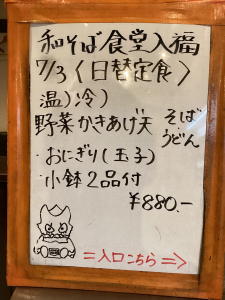 和そば食堂入福
7/3〈日替定食〉
温)冷)
野菜かきあげ天 そば うどん
・おにぎり(玉子)
小鉢2品付
¥880.-
=入口こちら=>